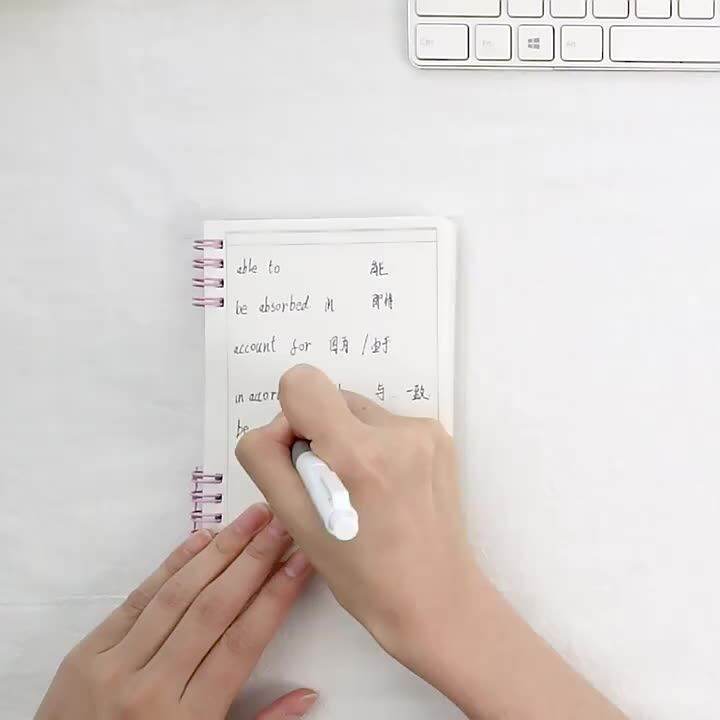 Ctrl Fn Alt
able to 能
be absorbed in
account for 因为 / 由于
in accor 与 … 一致
be